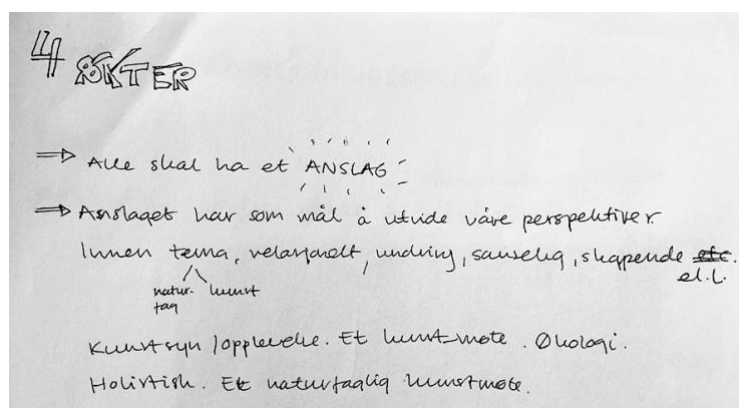 4 ØKTER
⇒ Alle skal ha et ANSLAG
⇒ Anslaget har som mål å utvide våre perspektiver
Innen tema, relasjonelt, undring, sanselig, skapende etc.
el.l.
natur- kunst
fag
Kunstsyn/opplevelse. Et kunstmøte. Økologi.
Holistisk. Et naturfaglig kunstmøte.